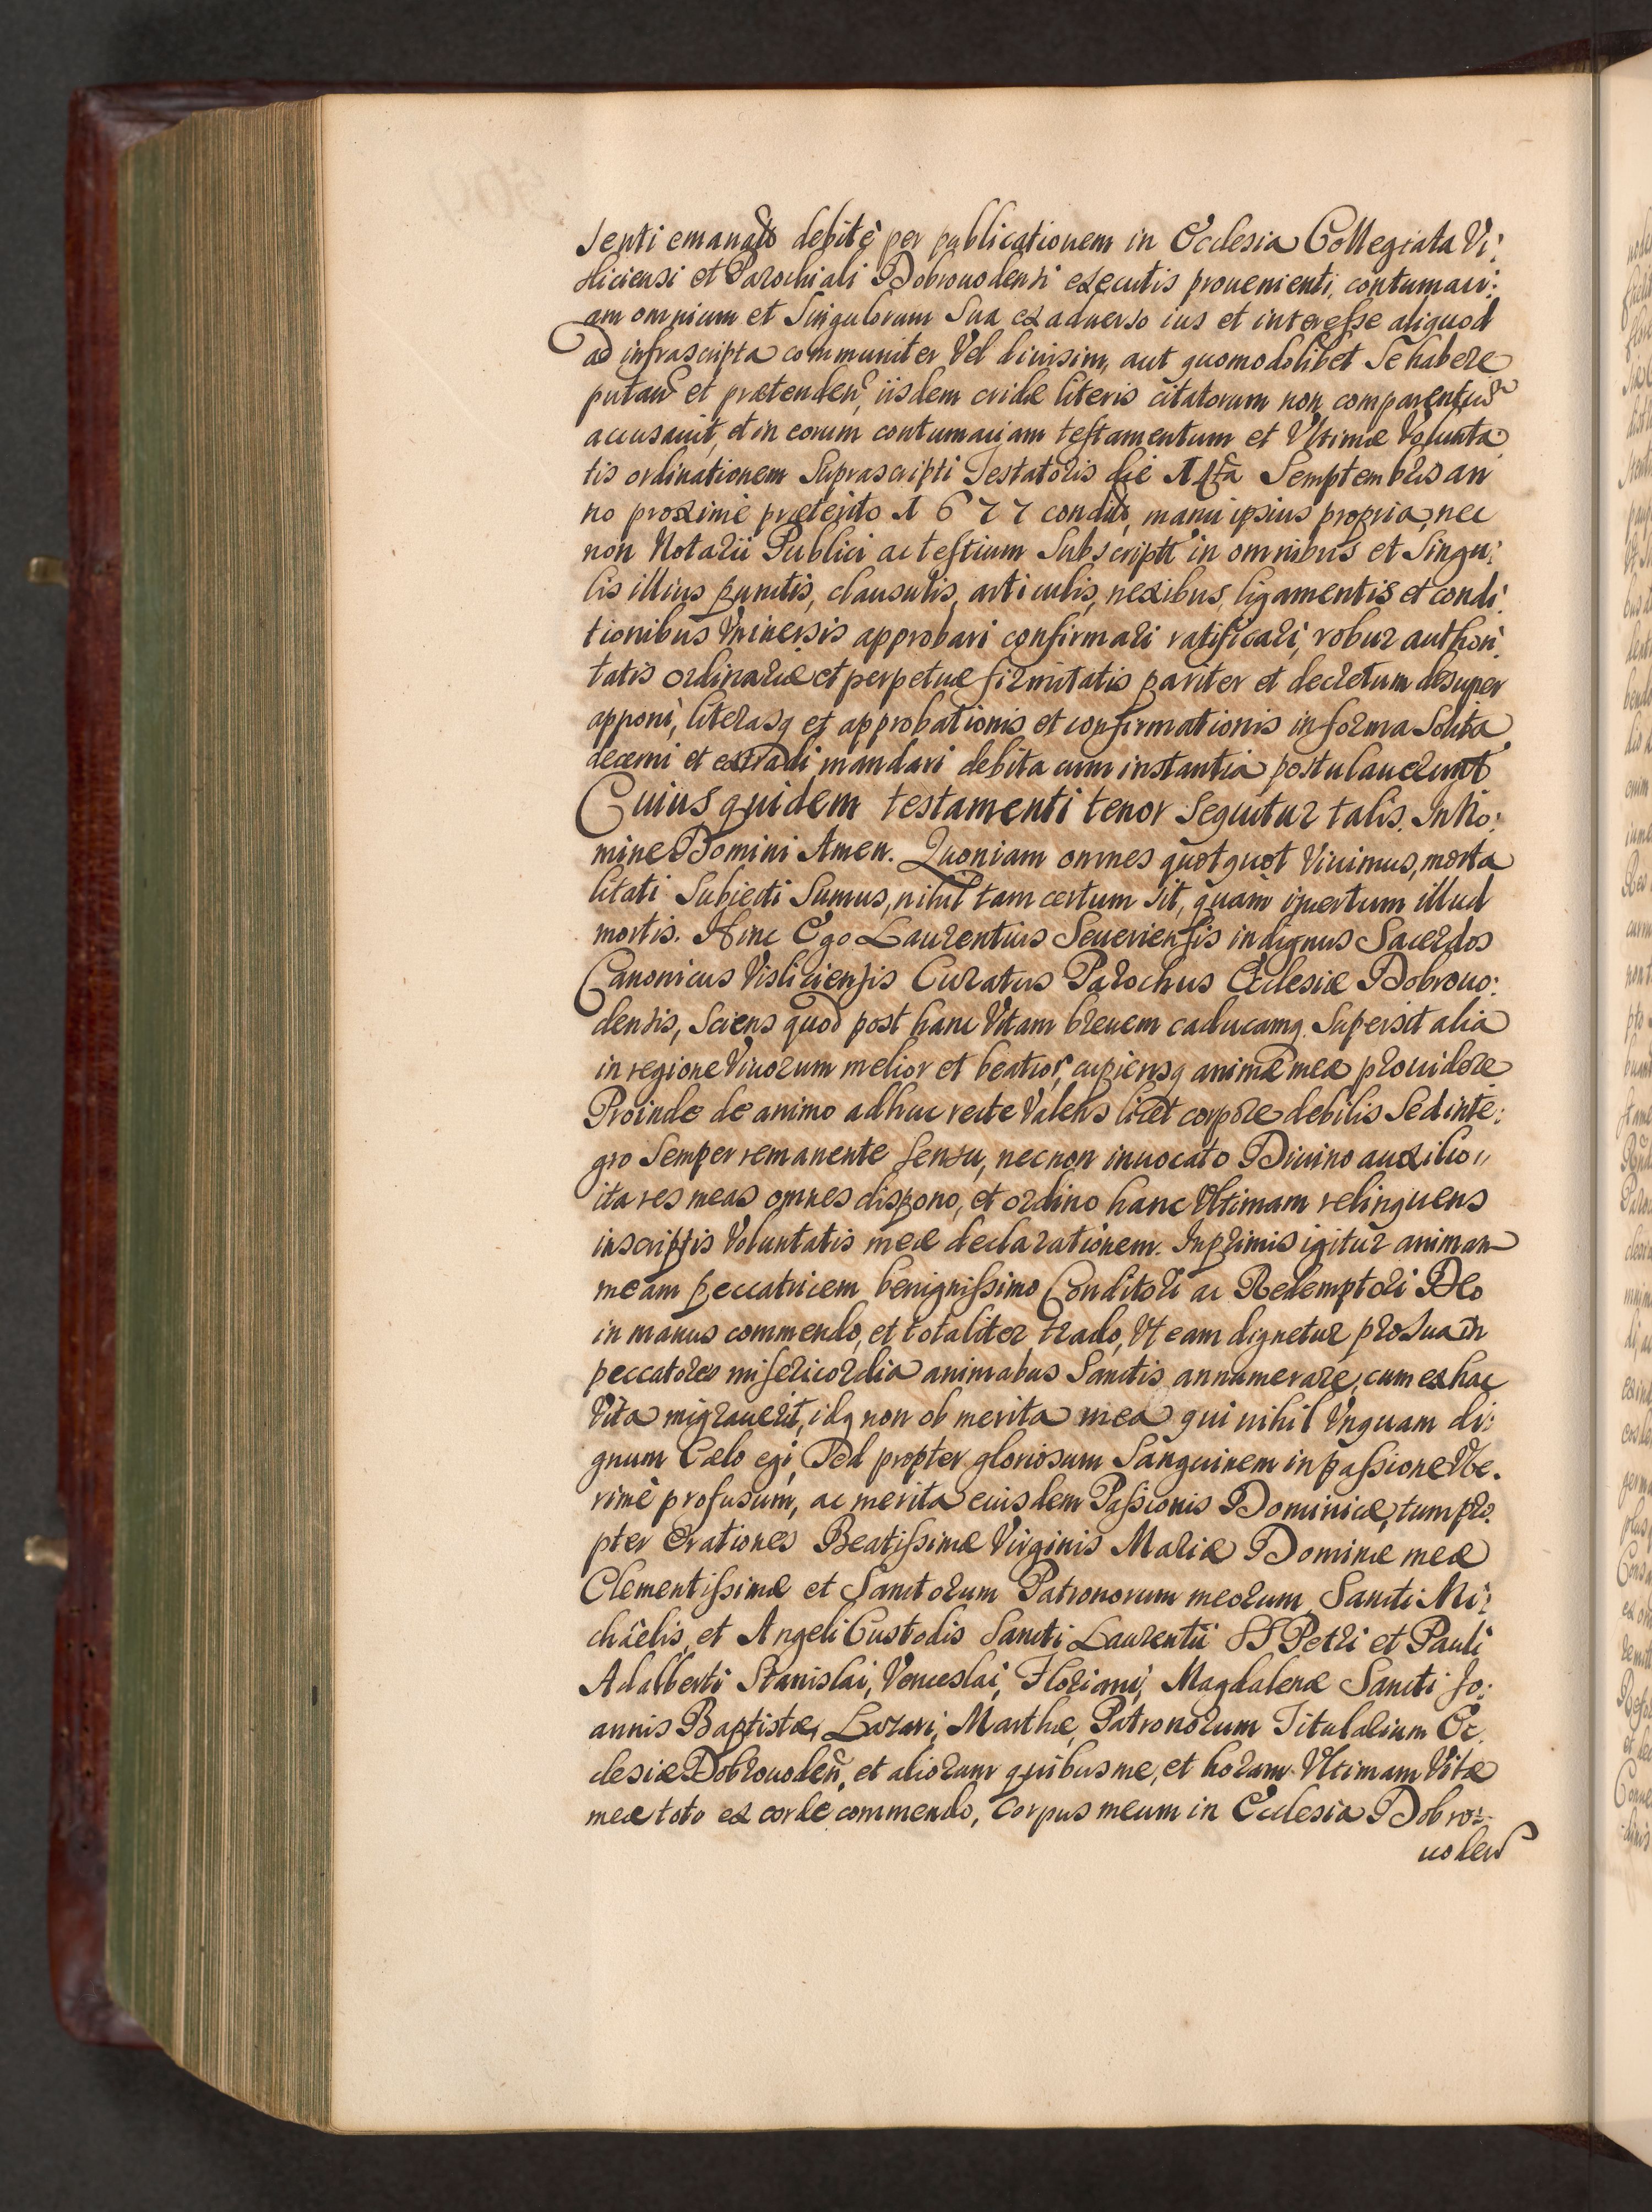 senti emanatis debitè per publicationem in Ecclesia Collegiata Vi:
sliciensi et Parochiali Dobrouodensi executis prouenienti, contumaci:
am omnium et Singulorum Sua ex aduerso ius et interesse aliquod
ad infrascripta communiter Vel diuisim, aut quomodolibet Se habere
putan et prætenden, iisdem cridæ literis citatorum non comparentium
accusauit, et in eorum contumaciam testamentum et Vltimæ Volunta:
tis ordinationem Suprascripti Testatoris die 14ta Septembris an
no proximè præterito 1677 condit, manu ipsius propria, nec
non Notarii Publici ac testium Subscript in omnibus et Singu:
lis illius punctis, clausulis, articulis, nexibus, ligamentis et condi:
tionibus Vniuersis approbari confirmari ratificari, robur authori:
tatis ordinariæ et perpetuæ firmitatis pariter et decretum desuper
apponi, literasq et approbationis et confirmationis in forma Solita
decerni et extradi mandari debita cum instantia postulauerunt
Cuius quidem testamenti tenor Sequitur talis. In No:
mine Domini Amen. Quoniam omnes quotquot Viuimus, morta
litati Subiecti Sumus, nihil tam certum sit, quam incertum illud
mortis. Hinc Ego Laurentius Seueriensis indignus Sacerdos
Canonicus Visliciensis Curatus Parochus Ecclesiæ Dobrouo:
densis, Sciens quod post hanc Vitam breuem caducamq. Supersit alia
in regione Viuorum melior et beatior, cupiensq animæ meæ prouidere
Proinde de animo adhuc recte Valens licet corpore debilis Sed inte:
gro Semper remanente Sensu, necnon inuocato Diuino auxilio
ita res meas omnes dispono, et ordino hanc Vltimam relinquens
inscriptis Voluntatis meæ declarationem. Inprimis igitur animam
meam peccatricem benignissimo Conditori ac Redemptori DEo
in manus commendo, et totaliter trado, Vt eam dignetur pro Sua in
peccatores misericordia animabus Sanctis annumerare, cum ex hac
Vita migrauerit, idq non ob merita mea qui nihil Vnquam di:
gnum Cælo egi, Sed propter gloriosum Sanguinem in passione Vbe.
rimè profusum, ac merita eiusdem Passionis Dominicæ, tum pro:
pter Orationes Beatissimæ Virginis Mariæ Dominæ meæ
Clementissimæ et Sanctorum Patronorum meorum, Sancti Mi:
chaelis, et Angeli Custodis Sancti Laurentii SS Petri et Pauli
Adalberti Stanislai, Venceslai, Floriani, Magdalenæ Sancti Jo:
annis Baptistæ, Lazari, Marthæ, Patronorum Titularium Ec.
clesiæ Dobrouoden, et aliorum quibus me, et horam Vltimam Vitæ
meæ toto ex corde commendo, Corpus meum in Ecclesia Dobro:
uoden